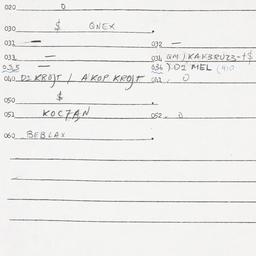 020 0
030 $ QNEX
032 — 032 —
033 — 034 QM) KAKBRUZ3-†$
035 — 036 ) D2 MEL (410
040 D2 KROJT / A'KOP KROJT 042. 0
050 $
052 KOC7AN 052. 0
060 BEBLAX